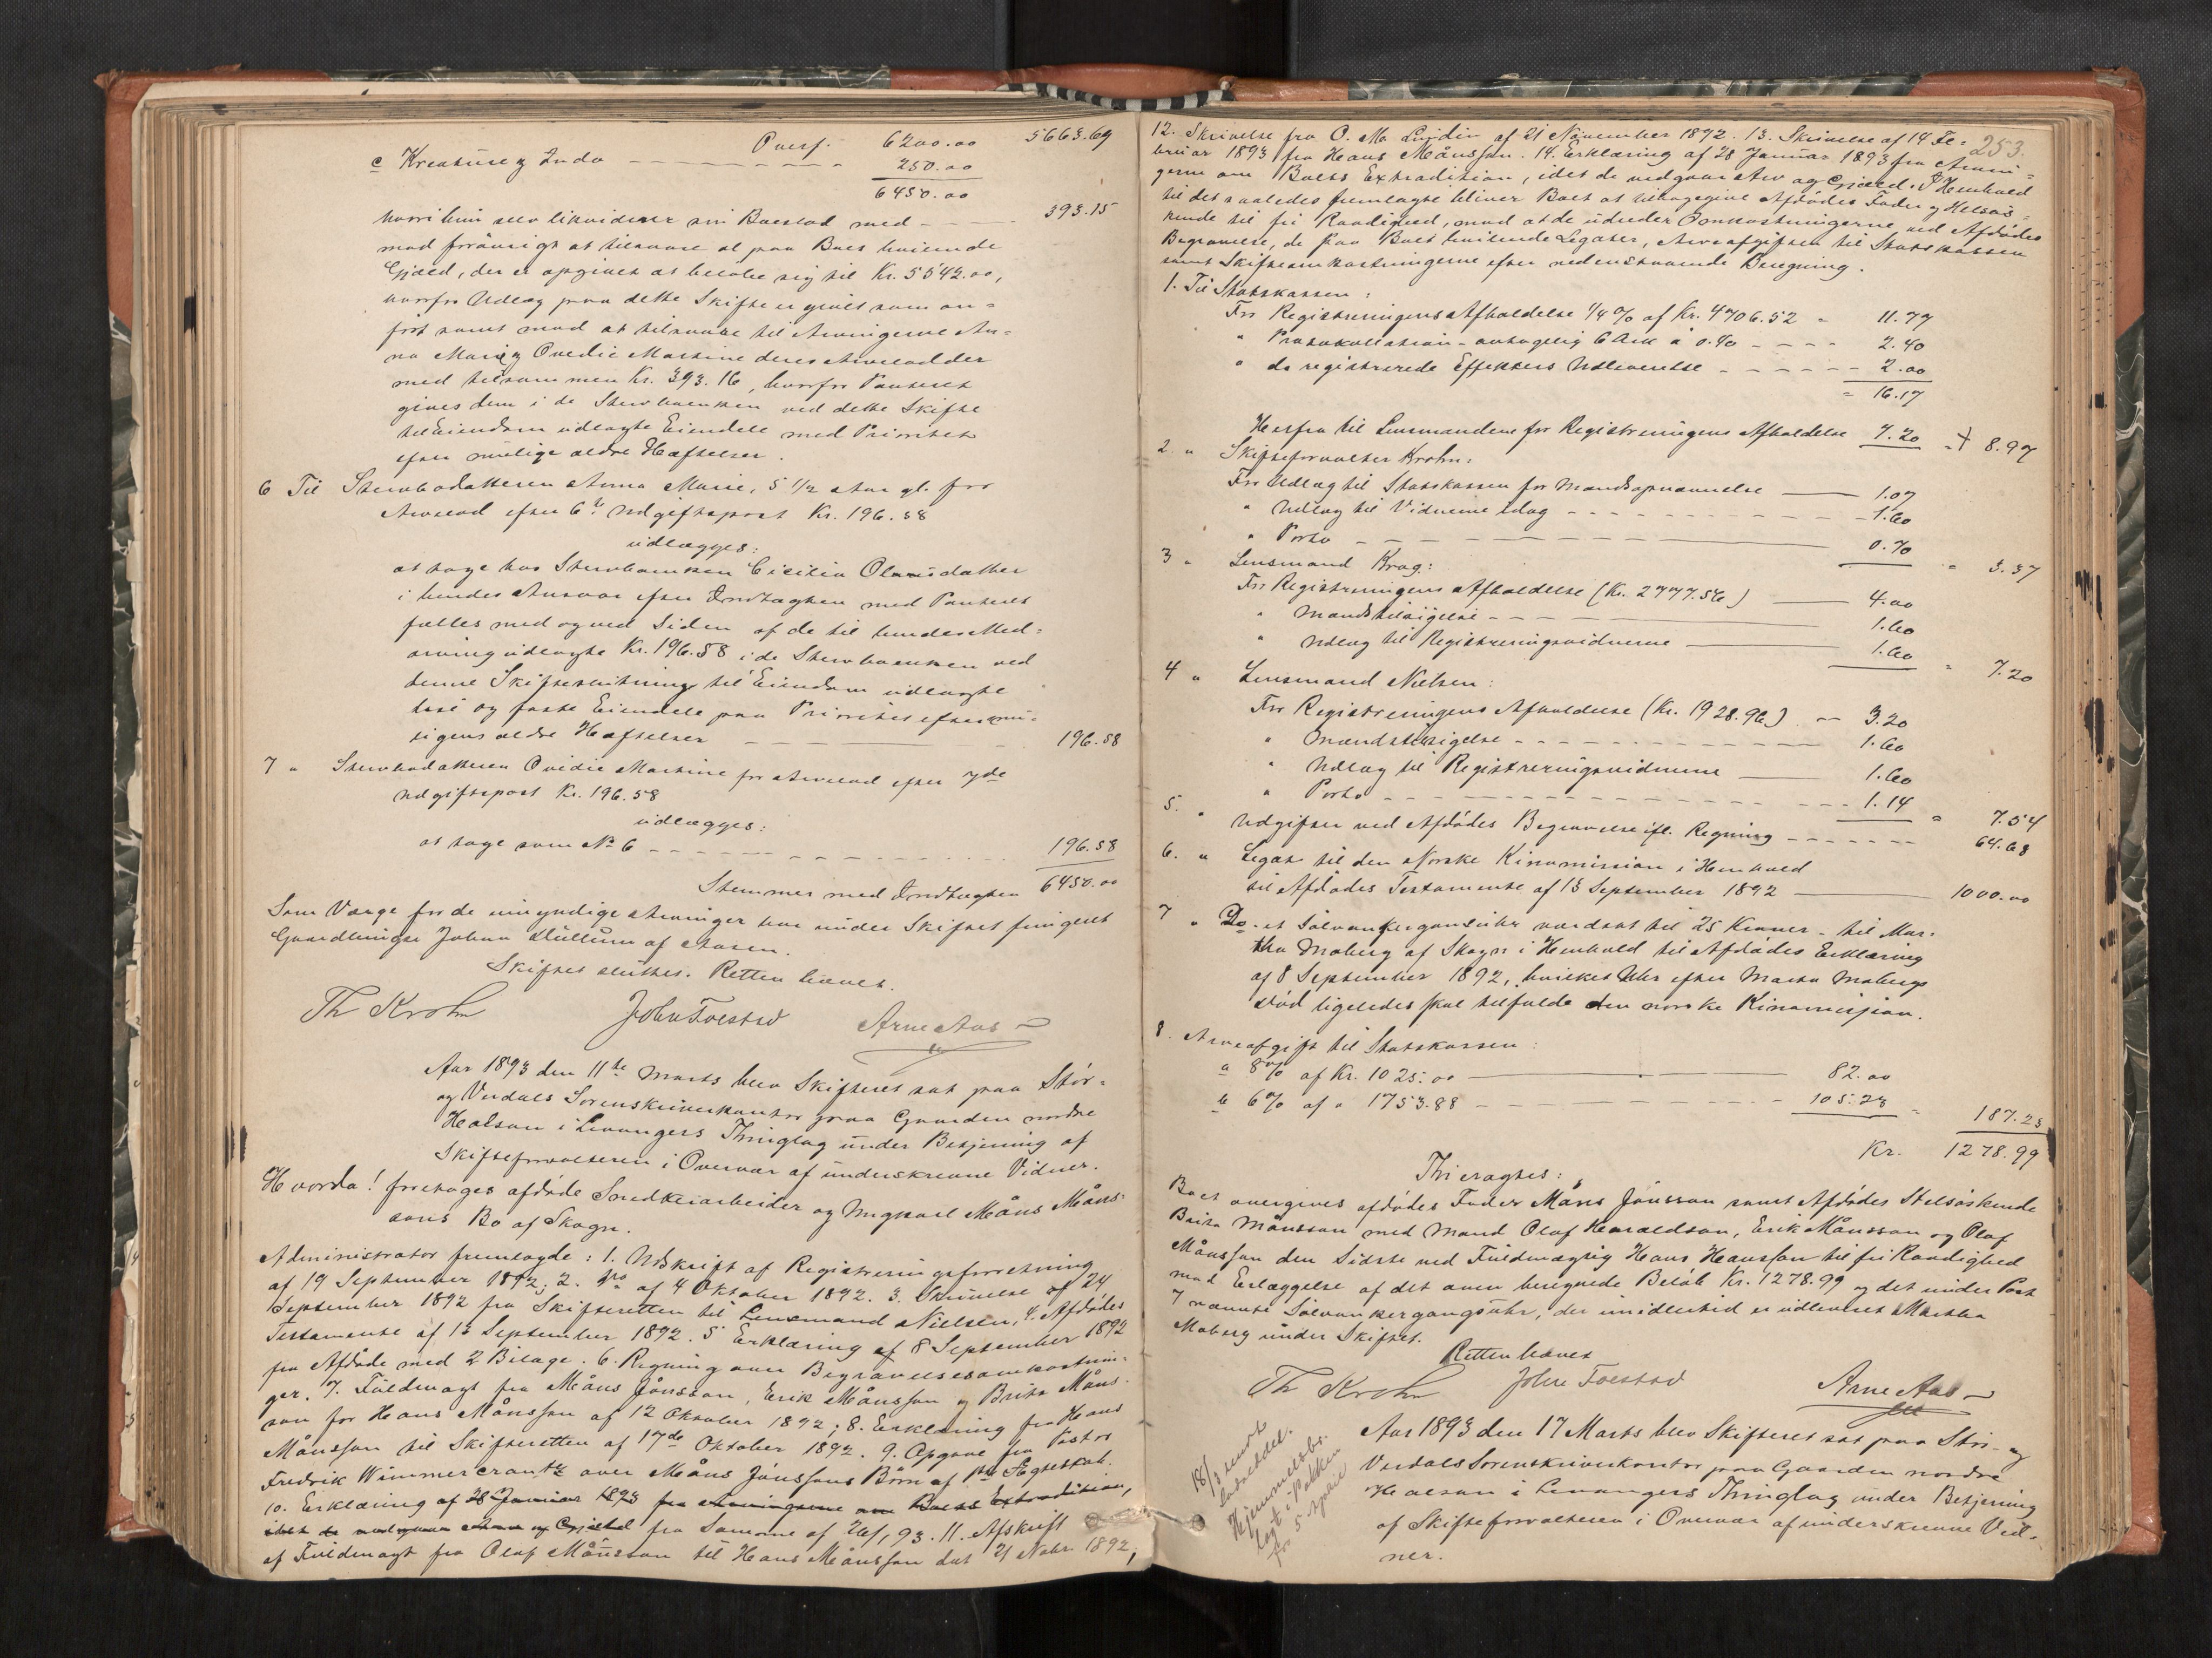 Overf. 6200.00 5663.69
c Kreature og Indbo 250.00
6450.00
hvori hun selv likviderer sin Boeslod med 393.15
mod forøvrigt at tilsvare al paa Boet hvilende
Gjæld, der er opgivet at beløbe sig til Kr. 5542.00,
hvorfor Udlæg paa dette Skifte er givet som an-
ført samt mod at tilsvare til Arvingerne An-
na Marie og Ovedie Martine deres Arvelodder
med tilsammen Kr. 393.16, hvorfor Panteret
gives dem i de Stervboenken ved dette Skifte
til Eiendom udlagte Eiendele med Prioritet
efter mulige ældre Hæftelser.
6 Til Stervbodatteren Anna Marie, 5 1/2 Aar gl. for
Arvelod efter 6te Udgiftspost Kr. 196.58
udlægges:
at tage hos Stervboenken Cicilia Olausdatter
i hendes Ansvar efter Indtægten med Panteret
fælles med og ved Siden af de til hendes Med-
arving udlagte Kr. 196.58 i de Stervboenken ved
denne Skifteslutning til Eiendom udlagte
løse og faste Eiendele paa Prioritet efter mu-
ligens ældre Hæftelser 196.58
7 " Stervbodatteren Ovidie Martine for Arvelod efter 7de
Udgiftspost Kr. 196.58
udlægges:
at tage som No 6 196.58
Stemmer med Indtægten 6450.00
Som Værge for de umyndige Arvinger har under Skiftet fungeret
Gaardbruger Johan Hullum af Aasen.
Skiftet sluttet. Retten hævet.
Th Krohn John Foestad Arne Aas
Aar 1893 den 11te Marts blev Skifteret sat paa Stør-
og Verdals Sorenskriverkontor paa Gaarden nordre
Halsan i Levangers Thinglag under Betjening af
Skifteforvalteren i Overvær af underskrevne Vidner.
Hvorda! foretoges afdøde Snedkerarbeider og Ungkarl Måns Måns-
sons Bo af Skogn.
Administrator fremlagde: 1. Udskrift af Registreringsforretning
af 19 September 1892; 2. Do af 4 Oktober 1892. 3. Skrivelse af 24
September 1892 fra Skifteretten til Lensmand Nielsen, 4. Afdødes
Testamente af 13 September 1892. 5 Erklæring af 8 September 1892
fra Afdøde med 2 Bilage. 6. Regning over Begravelsesomkostnin-
ger. 7. Fuldmagt fra Måns Jönsson, Erik Månsson og Brita Måns-
son for Hans Månsson af 12 Oktober 1892; 8. Erklæring fra Hans
Månsson til Skifteretten af 17de Oktober 1892. 9. Opgave fra Pastor
Fredrik Wimmercrantz over Måns Jönssons Børn af 1ste Ægteskab.
10. Erklæring af 28 Januar 1893 fra Arvingerne om Boets Extradition,
idet de vedgaar Arv og Gjæld fra Samme af 26/1 93. 11. Afskrift
af Fuldmagt fra Olof Månsson til Hans Månsson dat 21 Novbr 1892,
253.
12. Skrivelse fra O. M. Lundin af 21 November 1892. 13. Skrivelse af 14 Fe-
bruar 1893 fra Hans Månsson. 14. Erklæring af 28 Januar 1893 fra Arvin-
gerne om Boets Extradition, idet de vedgaar Arv og Gjæld. I Henhold
til det saaledes fremlagte bliver Boet at tilbagegive Afdødes Fader og Helsøs-
kende til fri Raadighed, mod at de udreder Omkostningerne ved Afdødes
Begravelse, de paa Boet hvilende Legater, Arveafgiften til Statskassen
samt Skifteomkostningerne efter nedenstaaende Beregning.
1. Til Statskassen:
For Registreringens Afholdelse 1/4 % af Kr. 4706.52 = 11.77
" Protokollation - antagelig 6 Ark à 0.40 2.40
" de registrerede Effekters Udleverelse 2.00
= 16.17
Herfra til Lensmændene for Registreringens Afholdelse 7.20 = 8.97
2. " Skifteforvalter Krohn:
For Udlæg til Statskassen for Mandsopnævnelse 1.07
" Udlæg til Vidnerne idag 1.60
" Porto 0.70 = 3.37
3 " Lensmand Krag:
For Registreringens Afholdelse (Kr. 2777.56) 4.00
" Mandstilsigelse 1.60
" Udlæg til Registreringsvidnerne 1.60 = 7.20
4 " Lensmand Nielsen:
For Registreringens Afholdelse (Kr. 1928.96) 3.20
" Mandstilsigelse 1.60
" Udlæg til Registreringsvidnerne 1.60
" Porto 1.14 = 7.54
5. " Udgifter ved Afdødes Begravelse ifl. Regning 64.68
6. " Legat til den Norske Kinamission i Henhold
til Afdødes Testamente af 13 September 1892 1000.00
7 " Do - et Sølvankergangsuhr vurderet til 25 Kroner - til Mar-
tha Moberg af Skogn i Henhold til Afdødes Erklæring
af 8 September 1892, hvilket Uhr efter Marta Mobergs
død ligeledes skal tilfalde den norske Kinamission.
8. Arveafgift til Statskassen:
a 8% af Kr. 1025.00 82.00
b 6% af " 1753.88 105.23 = 187.23
Kr. 1278.99
Thi eragtes:
Boet overgives afdødes Fader Måns Jönsson samt Afdødes Helsøskende
Brita Månsson med Mand Olof Haraldson, Erik Månsson og Olof
Månsson den Sidste ved Fuldmægtig Hans Hansson til fri Raadighed
mod Erlæggelse af det oven beregnede Beløb Kr. 1278.99 og det under Post
7 nævnte Sølvankergangsuhr, der imidlertid er udleveret Martha
Moberg under Skiftet.
Retten hævet
Th Krohn John Foestad Arne Aas
18/3 sendt
Hjemmelsbr.
lagt i Pakken
for 5 April
Aar 1893 den 17 Marts blev Skifteret sat paa Stør- og
Verdals Sorenskriverkontor paa Gaarden nordre
Halsan i Levangers Thinglag under Betjening
af Skifteforvalteren i Overvær af underskrevne Vid-
ner.